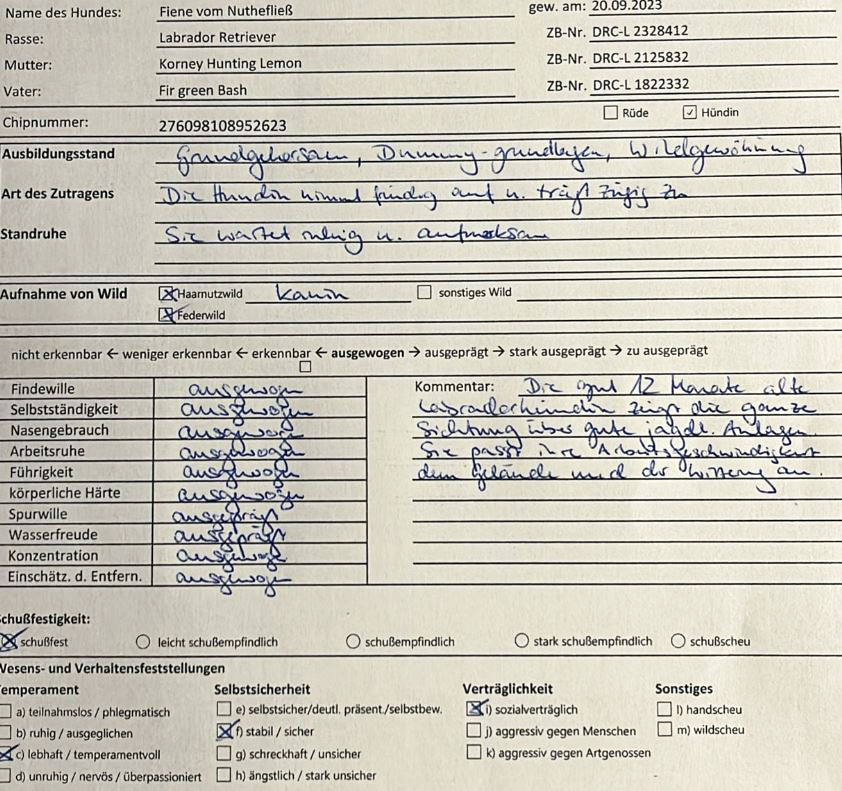 Name des Hundes: Fiene vom Nuthefließ gew. am: 20.09.2023
Rasse: Labrador Retriever ZB-Nr. DRC-L 2328412
Mutter: Korney Hunting Lemon ZB-Nr. DRC-L 2125832
Vater: Fir green Bash ZB-Nr. DRC-L 1822332
Chipnummer: 276098108952623 Rüde Hündin
Ausbildungsstand Grundgehorsam, Dummy-grundlagen, Wildgewöhnung
Art des Zutragens Die Hündin nimmt freudig auf u. trägt zügig zu
Standruhe Sie wartet ruhig u. aufmerksam
Aufnahme von Wild Haarnutzwild Kanin sonstiges Wild
Federwild
nicht erkennbar ← weniger erkennbar ← erkennbar ← ausgewogen → ausgeprägt → stark ausgeprägt → zu ausgeprägt
Findewille ausgewogen Kommentar: Die gut 12 Monate alte
Selbstständigkeit ausgewogen Labradorhündin zeigt die ganze
Nasengebrauch ausgewogen Sichtung über gute jagdl. Anlagen
Arbeitsruhe ausgewogen Sie passt ihre Arbeitsgeschwindigkeit
Führigkeit ausgewogen dem Gelände und der Witterung an.
körperliche Härte ausgewogen
Spurwille ausgeprägt
Wasserfreude ausgeprägt
Konzentration ausgewogen
Einschätz. d. Entfern. ausgewogen
Schußfestigkeit:
schußfest leicht schußempfindlich schußempfindlich stark schußempfindlich schußscheu
Wesens- und Verhaltensfeststellungen
Temperament Selbstsicherheit Verträglichkeit Sonstiges
a) teilnahmslos / phlegmatisch e) selbstsicher/deutl. präsent./selbstbew. i) sozialverträglich l) handscheu
b) ruhig / ausgeglichen f) stabil / sicher j) aggressiv gegen Menschen m) wildscheu
c) lebhaft / temperamentvoll g) schreckhaft / unsicher k) aggressiv gegen Artgenossen
d) unruhig / nervös / überpassioniert h) ängstlich / stark unsicher